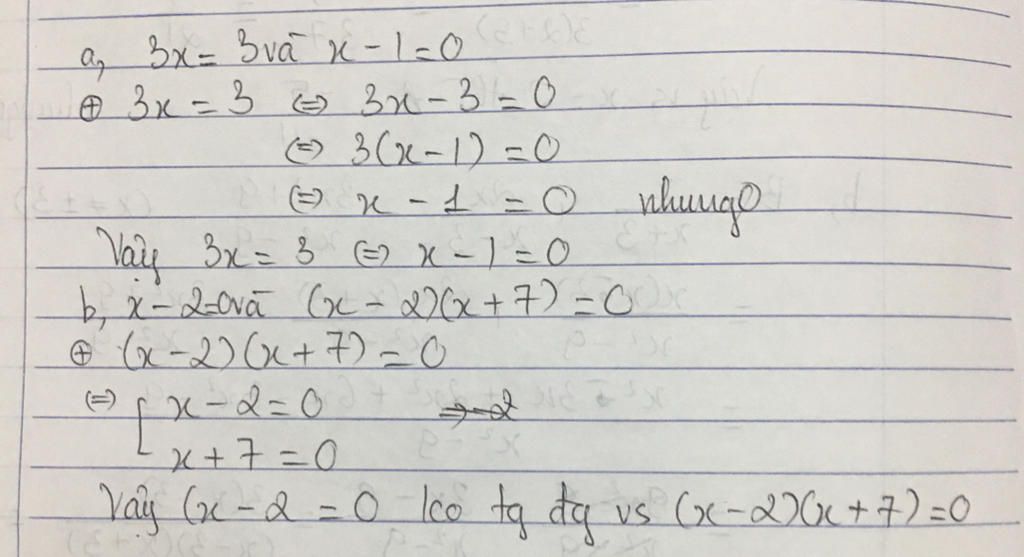 a, 3x = 3 và x - 1 = 0
⊕ 3x = 3 ⇔ 3x - 3 = 0
⇔ 3(x-1) = 0
⇔ x - 1 = 0
Vậy 3x = 3 ⇔ x - 1 = 0
b, x - 2 = 0 và (x - 2)(x + 7) = 0
⊕ (x-2)(x+7) = 0
⇔ [ x - 2 = 0
x + 7 = 0
Vậy (x - 2 = 0 ko tg đg vs (x-2)(x+7) = 0